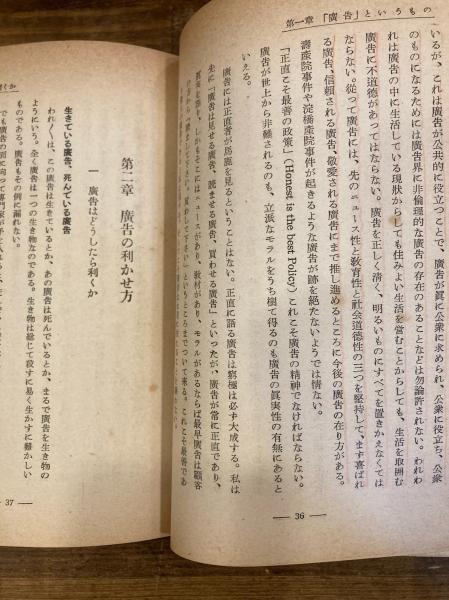 第一章 「廣告」というもの
いるが、これは廣告が公共的に役立つことで、廣告が眞に公衆に求められ、公衆に役立ち、公衆
のものになるためには廣告界に非倫理的な廣告の存在のあることなどは勿論許されない。われわ
れは廣告の中に生活している現狀からしても住みよい生活を営むことからしても、生活を取囲む
廣告に不道德があってはならない。廣告を正しく清く、明るいものにすべてを置きかえなくては
ならない。從って廣告には、先のニュース性と敎育性と社会道德性の三つを堅持して、ます喜ばれ
る廣告、信頼される廣告、敬愛される廣告にまで推し進めるところに今後の廣告の在り方がある。
壽産院事件や淀橋産院事件が起きるような廣告が跡を絶たないようでは情ない。
「正直こそ最善の政策」(Honest is the best Policy) これこそ廣告の精神でなければならない。
廣告が世上から非難されるのも、立派なモラルをうち樹て得るのも廣告の眞実性の有無にあると
いえる。
廣告には正直者が馬鹿を見るということはない。正直に語る廣告は窮極は必ず大成する。私は
先に「廣告は見せる廣告、読ませる廣告、買わせる廣告」といったが、廣告が常に正直であり、
眞実を語り、しかもそこにはニュースがあり、敎材があり、モラルがあるならば最早廣告は顧客
の方から
というところまでついて來る。これこそ最善であ
— 36 —
第二章 廣告の利かせ方
一 廣告はどうしたら利くか
生きている廣告、死んでいる廣告
われ〳〵は、この廣告は生きているとか、あの廣告は死んでいるとか、まるで廣告を生き物の
ようにいう。全く廣告は一つの生き物なのである。生き物は総じて殺すに易く生かすに難かしい
ものである。廣告もその例に漏れない。
でも廣告の面に向って専門家が手を入れると
37 —